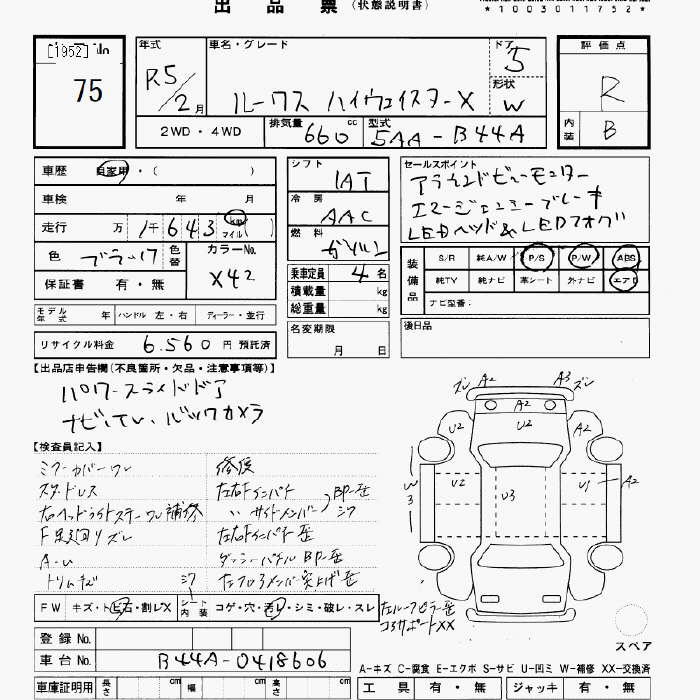 出品票 (状態説明書)
*10030117 52*
[1952] No
75
年式 R5/2月
車名・グレード ルークス ハイウェイスターX
ドア 5
形状 W
評価点 R
内装 B
2WD・4WD
排気量 660 cc
型式 5AA-B44A
車歴 自家用・( )
シフト IAT
セールスポイント
アラウンドビューモニター
エマージェンシーブレーキ
LEDヘッド&LEDフォグ
車検 年 月
冷房 AAC
走行 万 1千643 km マイル ( )
燃料 ガソリン
色 ブラック 色替
カラーNo. X42
保証書 有・無
乗車定員 4名
積載量 kg
総重量 kg
装備品 S/R 純A/W P/S P/W ABS
純TV 純ナビ 革シート 外ナビ エアB
ナビ型番:
モデル年式 年 ハンドル 左・右 ディーラー・並行
名変期限 月 日
後日品
リサイクル料金 6.560円 預託済
【出品店申告欄(不良箇所・欠品・注意事項等)】
パワースライドドア
ナビ,TV、バックカメラ
【検査員記入】
ミラーカバーワレ
スタッドレス
右ヘッドライトステーワレ補修
F足回リズレ
A・U
トリムキズ
修復
左右Fインパネ
〃サイドメンバー
BP歪 シワ
左右Fインパネ歪
ダッシュパネルBP歪
左フロアメンバー突上げ歪
シワ
FW キズ・ト・石・割レX
シート内装 コゲ・穴・汚レ・シミ・破レ・スレ
左ルーフピラー歪
コアサポートXX
ズレ A2 A3 ズレ
A2
U2 U2 A2
W3 U2 U3 U1 A2
スペア
登録No.
車台No. B44A-0418606
A-キズ C-腐食 E-エクボ S-サビ U-凹ミ W-補修 XX-交換済
車庫証明用 長さ cm 幅 cm 高さ cm
工具 有・無 ジャッキ 有・無